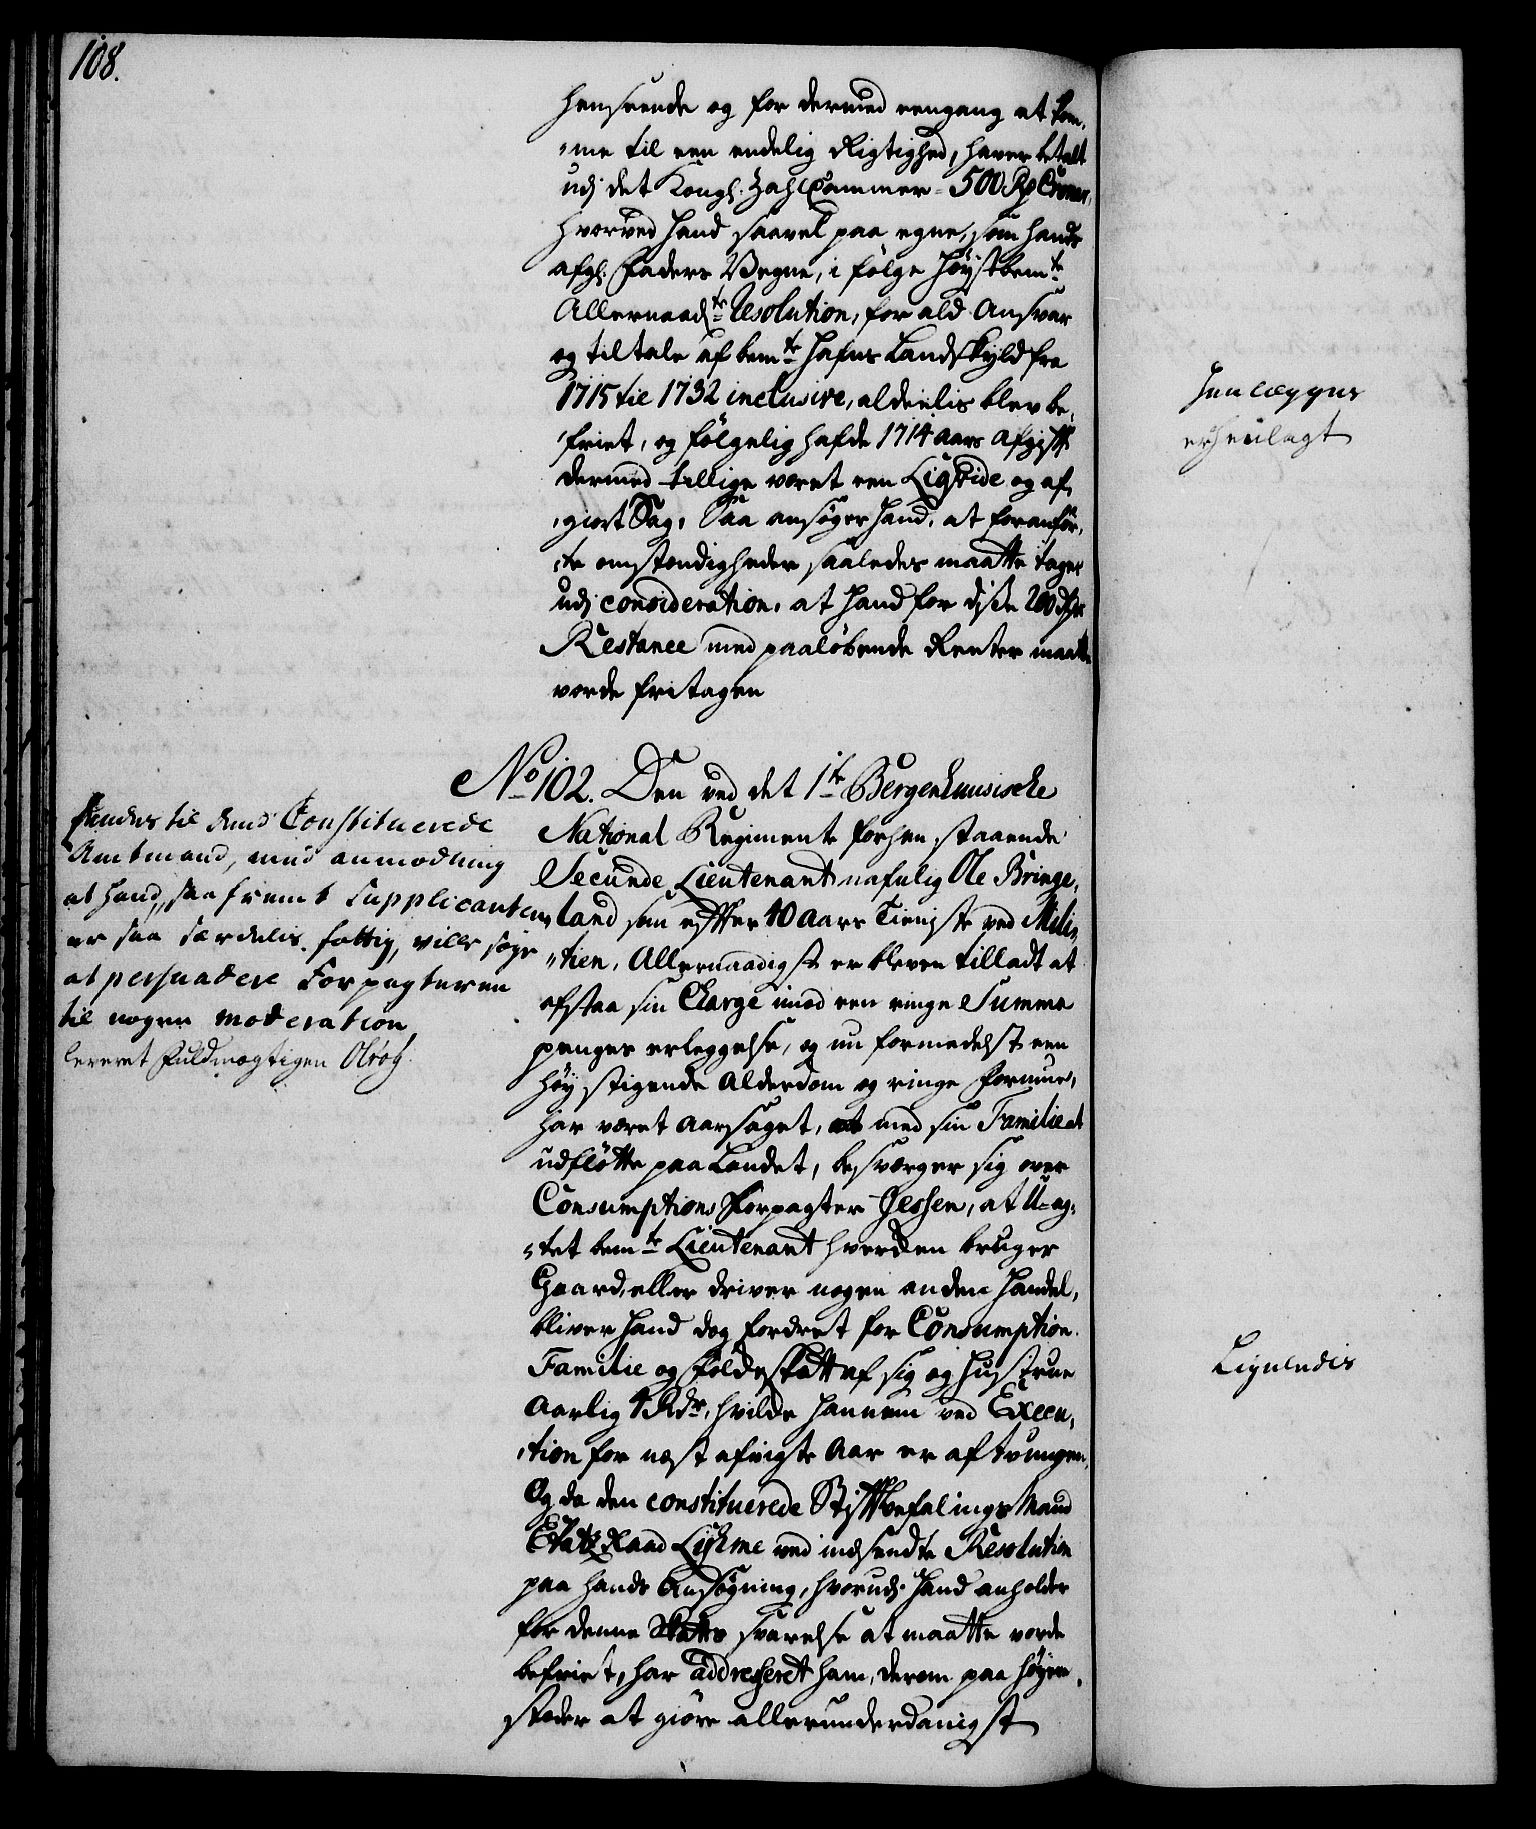 108.
henseende og for dermed eengang at kom¬
"me til een endelig Rigtighed, haver betalt
udj det Kongl. Zahlkammer 500 Rdr Croner,
hvorved hand saavel paa egne, som hands
afgl. Faders Vegne, i følge høystbemte
Allernaadste Resolution, for ald Ansvar
og tiltale af bemte Hafnes Landskyld fra
1715 til 1732 inclusive, aldeelis blev be¬
"friet, og følgelig hafde 1714 aars Afgift
dermed tillige været een Liqvide og af¬
"giort Sag, Saa ansøger hand, at foranfør¬
"te omstendigheder saaledes maatte tages
udj consideration, at hand for disse 200 Rdr
Restance med paaløbende Renter maatte
vorde fritagen
No 102. Den ved det 1te Bergenhuusische
National Regimente forhen staaende
Secunde Lieutenant nafnlig Ole Bringe¬
"land som efter 40 Aars Tieniste ved Mili¬
"tien, Allernaadigst er bleven tilladt at
afstaa sin Charge imod een ringe Summa
penges erleggelse, og nu formedelst een
høy stigende Alderdom og ringe Formue,
har været aarsaget, med sin Familie at
udfløtte paa Landet, besværger sig over
Consumptions Forpagter Jessen, at U-ag¬
"tet bemte Lieutenant hverken bruger
Gaard, eller driver nogen anden Handel,
bliver hand dog fordret for Consumption
Familie og Folkeskatt af sig og Hustrue
Aarlig 4 Rdr, hvilke hannem ved Execu¬
"tion for nest afvigte Aar er aftvungen,
Og da den constituerede Stiftbefalings Mand
Etatz Raad Lyhme ved indsendte Resolution
paa hands Ansøgning, hvorudj hand anholder
for denne Skatts svarelse at maatte vorde
befriet, har addresseret ham, derom paa høyere
steder at giøre allerunderdanigst
Sendes til dend Constituerede
Amtmand, med anmodning
at hand, saafremt Supplicanten
er saa særdelis fattig, ville søge
at persuadere Forpagteren
til nogen moderation
leveret Fuldmægtigen Olrog.
Henlægges
er henlagt
Ligeledis